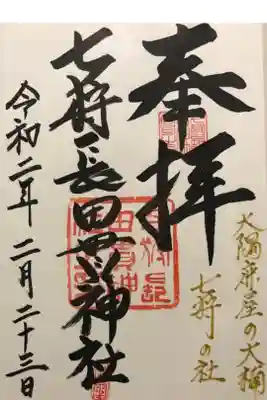 奉拝
七狩長田貫神社
令和二年 二月二十三日
大隅鹿屋の大楠
七狩の社